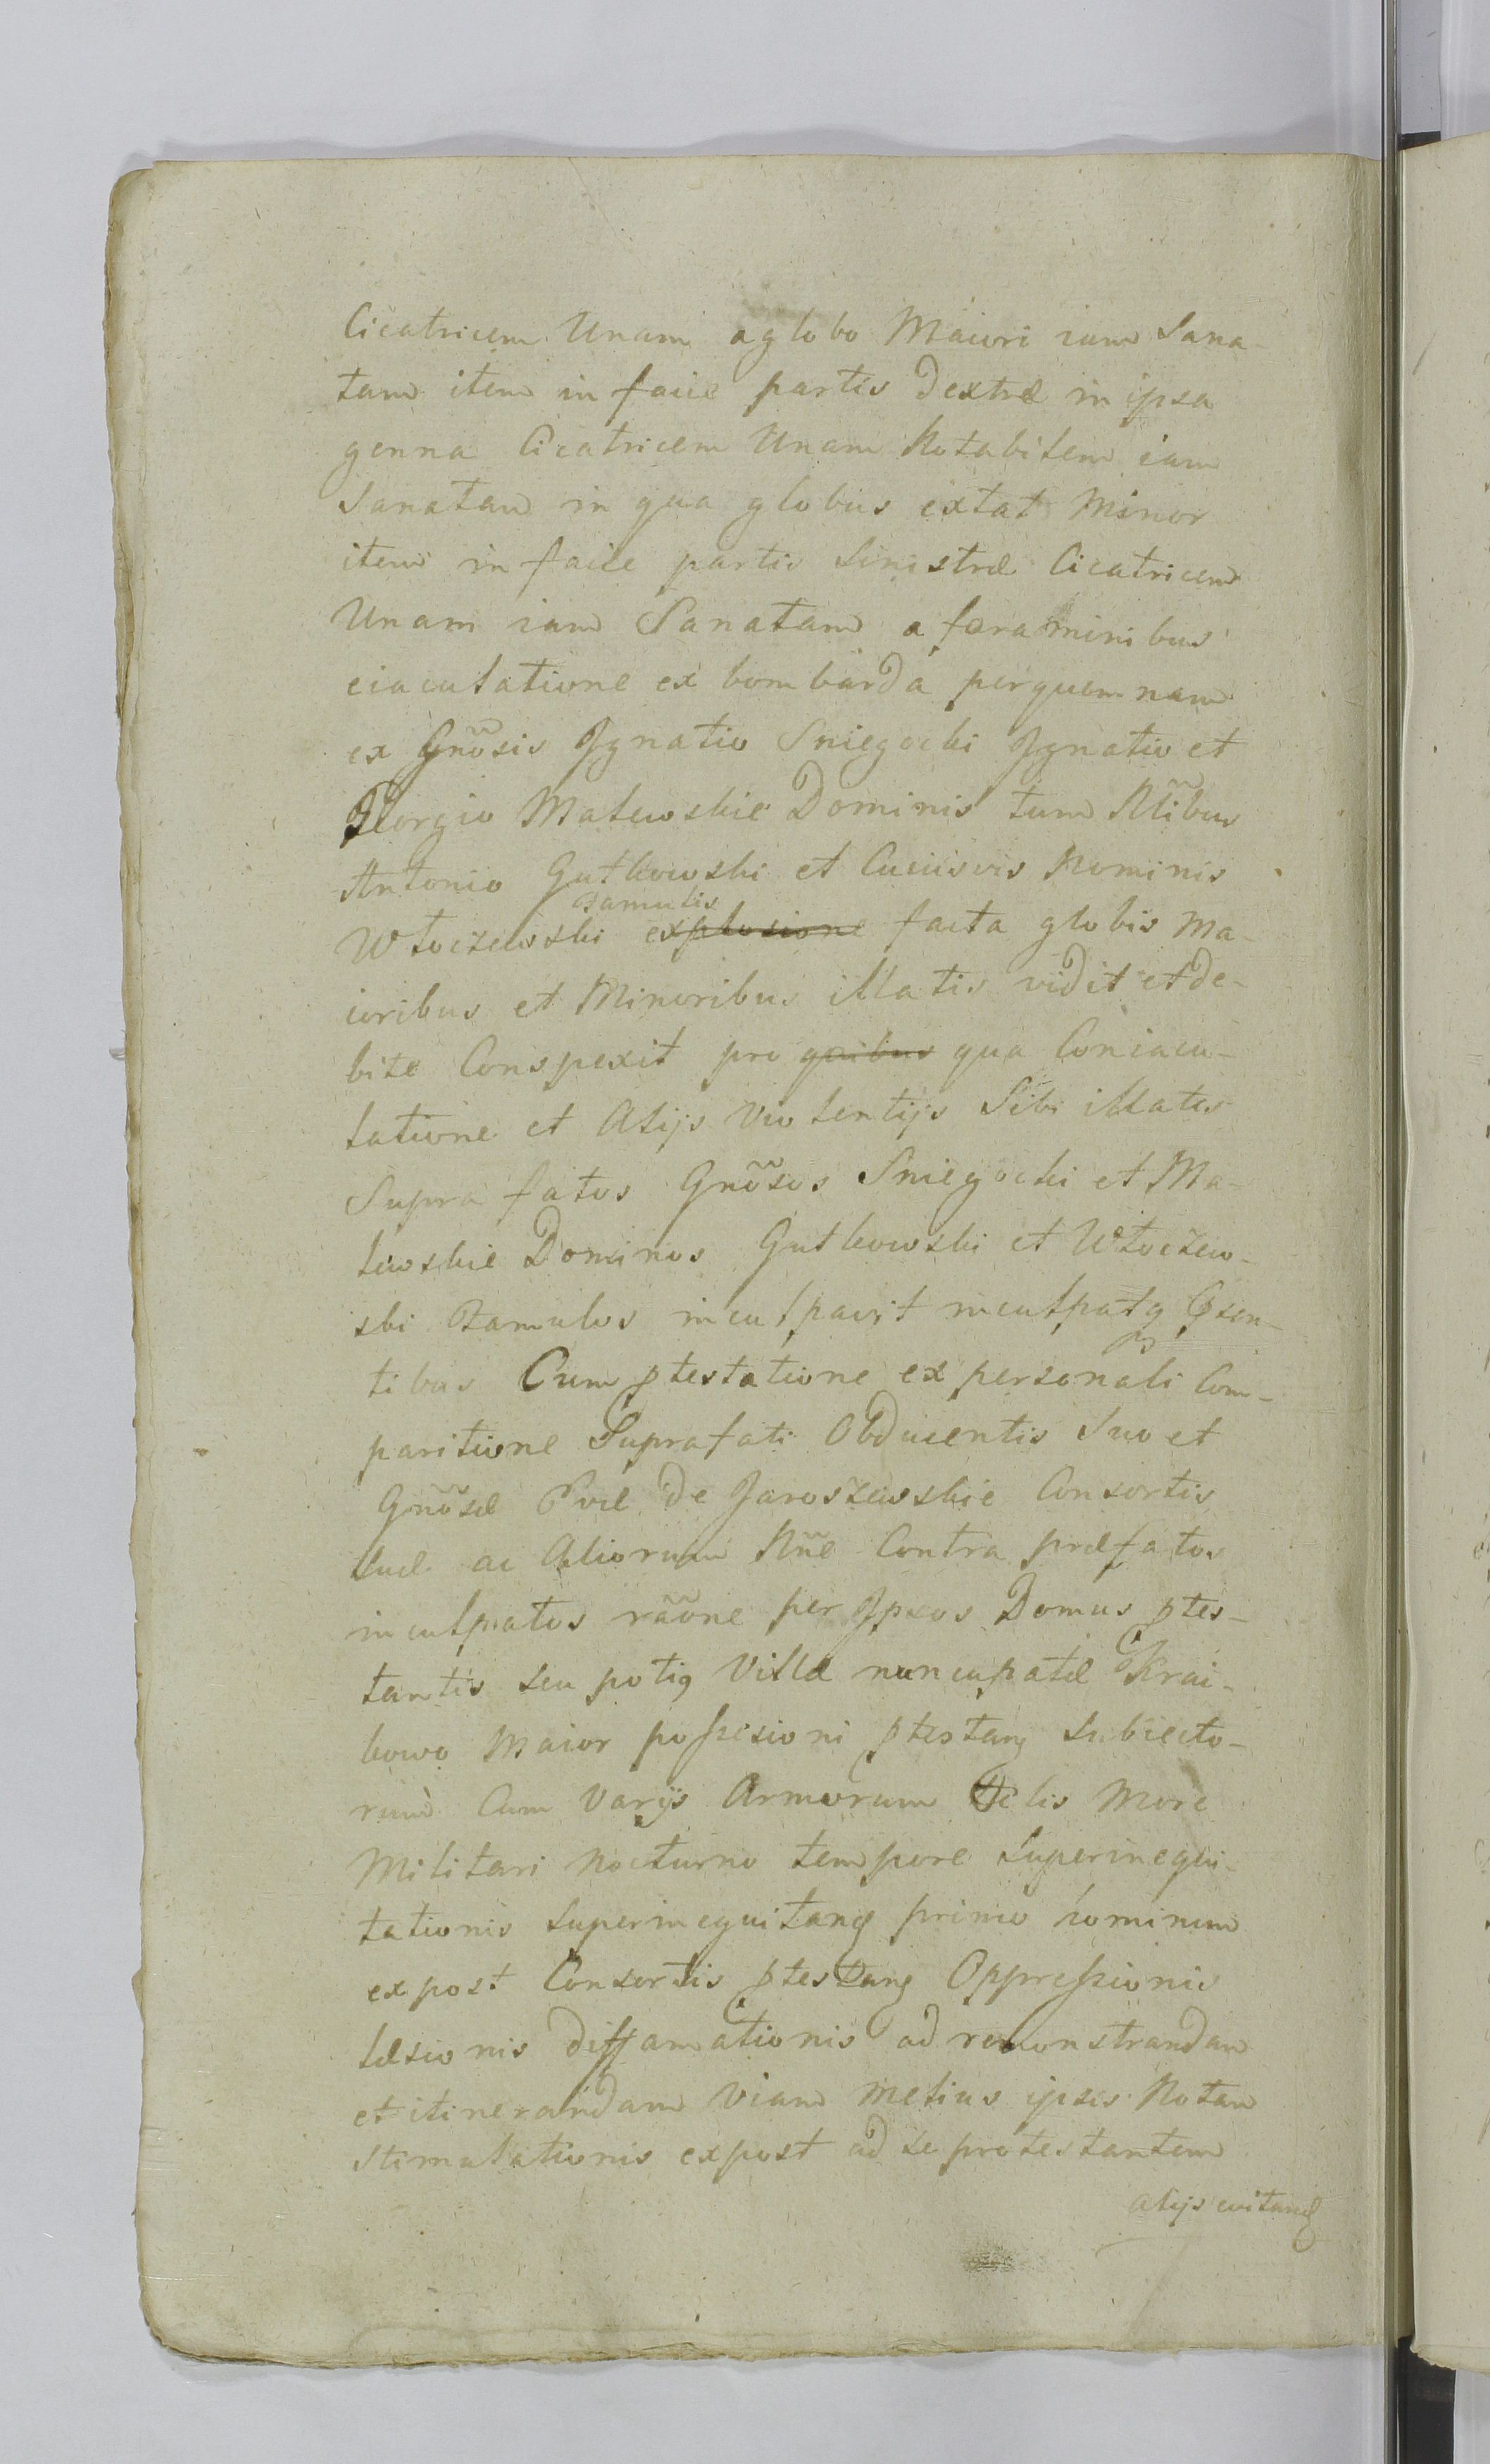 Cicatricem Unam a globo Maiori iam Sana-
tam item in facie partis dextræ in ipsa
genna Cicatricem Unam Notabilem iam
Sanatam in qua globus extat Minor
item in facie partis Sinistræ Cicatricem
Unam iam Sanatam a foraminibus
eiaculatione ex bombarda per quemnam
ex Gnõsis Ignatio Sniegocki Ignatio et
Georgio Malewskie Dominis tum Nlibus
Antonio Gutkowski et Cuiusvis Nominis
famulis
Włoczewski explosione facta globis Ma-
ioribus et Minoribus illatis vidit et de-
bite Conspexit pro quibus qua Coniacu-
latione et Alijs violentijs Sibi illatis
Supra fatos Gnõsos Sniegocki et Ma-
lewskie Dominos Gutkowski et Włoczew-
ski famulos inculpavit inculpatq
tibus Cum ptestatione ex personali Com-
paritione Suprafati Obducentis Suo et
Gnõsæ Evæ de Jaroszewskie Consortis
suæ ac Aliorum Nñe Contra præfatos
inculpatos rãõne per Ipsos Domus ptes-
tantis seu potiq Villæ nuncupatæ Krai-
kowo Maior possesioni ptestanq Subiecto-
rum Cum Varijs Armorum telis More
Militari Nocturno tempore superinequi-
tationis superinequitanq primo hominum
expost Consortis ptestanq Oppressionis
læsionis diffamationis ad remonstrandam
et itinerandam Viam Melius ipsis Notam
stimulationis expost ad se protestantem
alijs